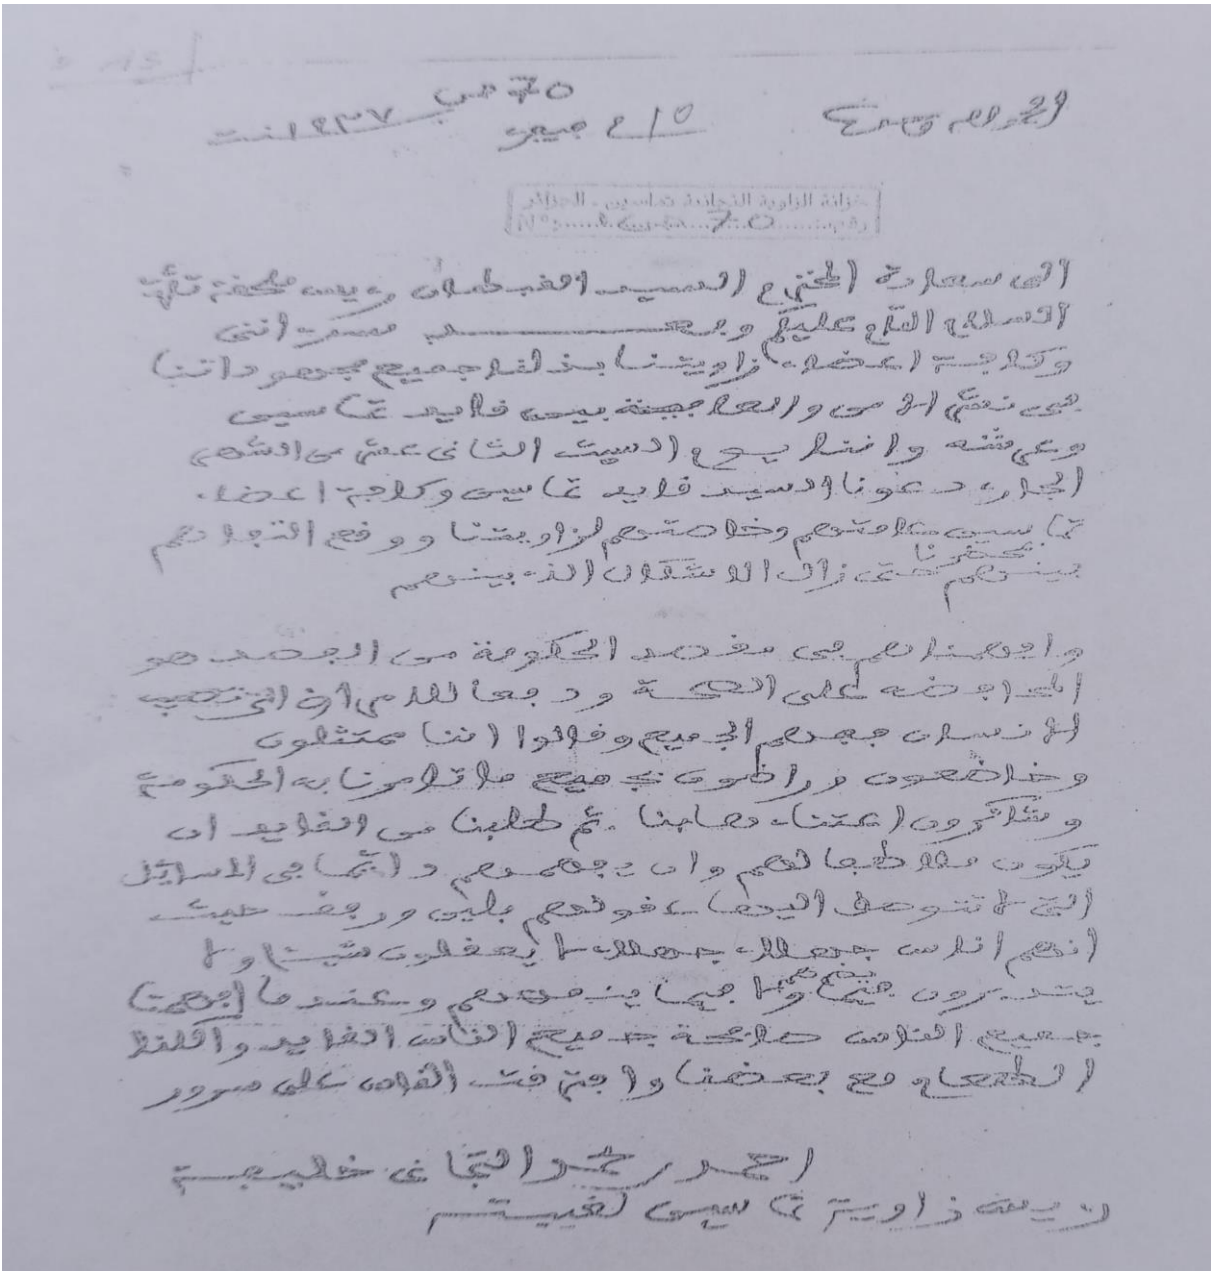 الحمد لله وحده
70 ص
خزانة الزاوية التجانية تماسين - الجزائر
70
الى سعادة المحترم السيد القبطان رييس ملحقة تقرت
السلام التام عليكم وبعد انني
وكافة اعضاء زاويتنا بذلنا جميع مجهوداتنا
في نشر الامن والعافية بين قايد تماسين
وعرشه واننا يوم السبت الثاني عشر من الشهر
الجاري دعونا السيد قايد تماسين وكافة اعضاء
تماسين عامتهم وخاصتهم لزاويتنا ووقع التفاهم
بينهم بمحضرنا حتى زال الاشكال الذي بينهم
وافهمناهم في مقصد الحكومة من القصد هو
المحافظة على الصحة ودفعا للامراض التي تصيب
الانسان ففهم الجميع وقالوا اننا ممتثلون
وخاضعون وراضون بجميع ما تامرنا به الحكومة
وشاكرون اعتناءها بنا ثم طلبنا من القايد ان
يكون ملاطفا لهم وان يفهمهم دائما في المسايل
التي لا تتوصل اليها عقولهم بلين ورفق حيث
انهم اناس جهلاء لا يعقلون شيئا ولا
يتدبرون فيما يضرهم ولا فيما ينفعهم وعندما افهمنا
جميع الناس صافحة جميع الناس القايد واكلنا
الطعام مع بعضنا وافترقت الناس على سرور
احمد بن محمد التجاني خليفة
رييس زاوية تماسين لغيبته